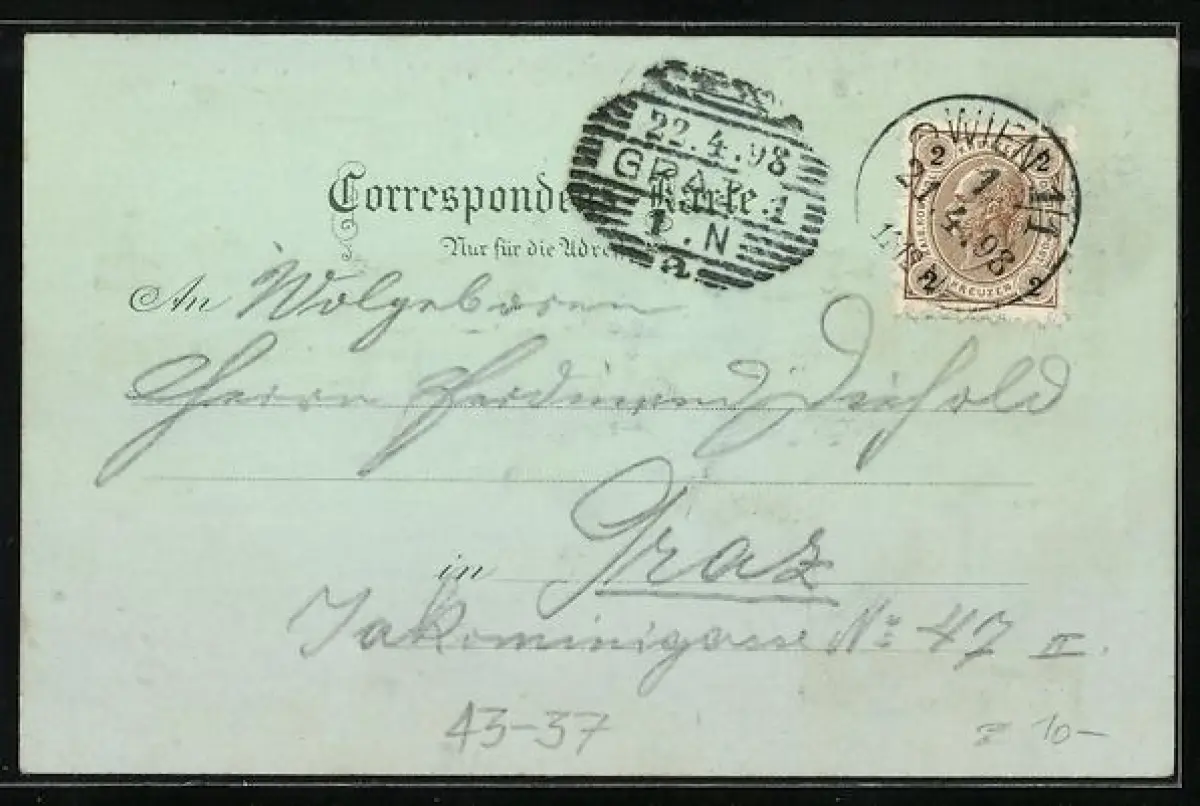 22.4.98
GRAZ 1
1.N
a
WIEN 1/1
21 4.98
2 2
KREUZER
2 2
Correspondenz-Karte.
Nur für die Adresse
An Wolgeboren
Herrn Ferdinand
in Graz
Jakominigasse No 47 II.
43-37
10-